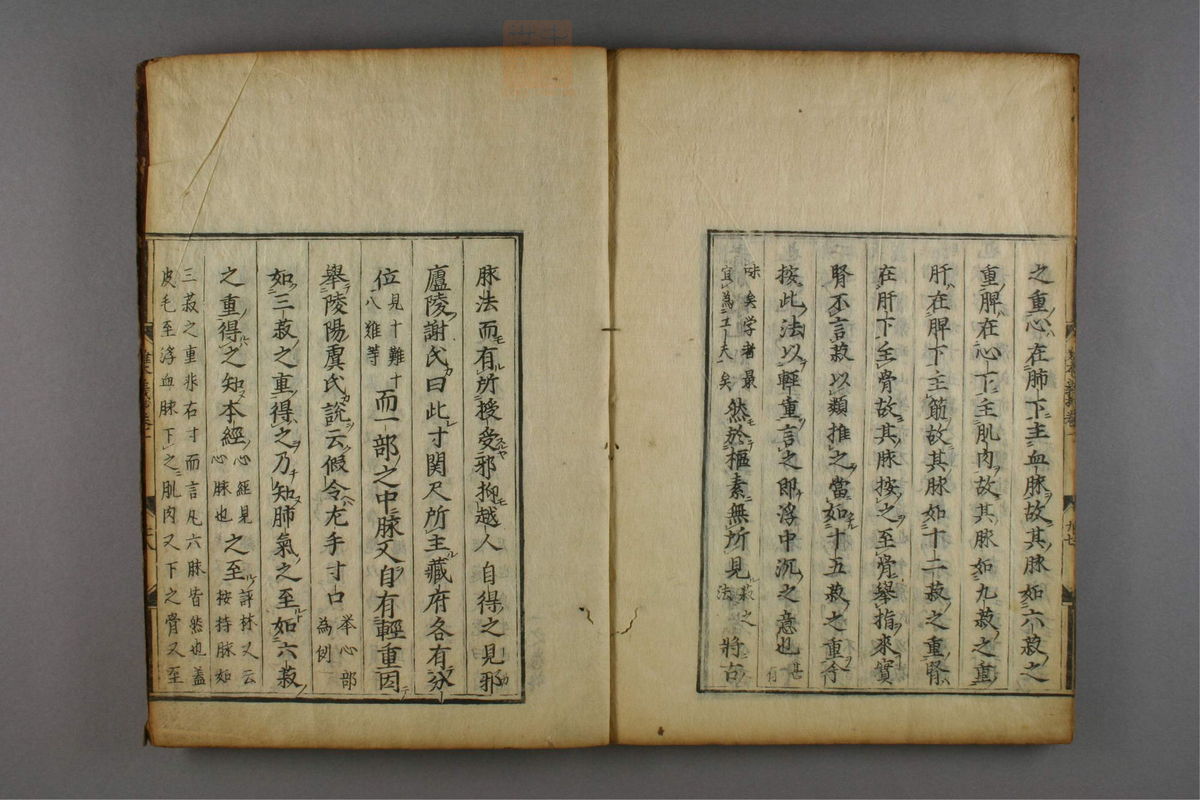 之重心在肺下主血脉故其脉如六菽之
重脾在心下主肌肉故其脉如九菽之重
肝在脾下主筋故其脉如十二菽之重腎
在肝下主骨故其脉按之至骨舉指來實
腎不言菽以類推之當如十五菽之重今
按此法以輕重言之即浮中沉之意也甚有
味矣学者最
宜為工夫矣
然於樞素無所見菽之法將古
脉法而有所授受邪抑越人自得之見邪
廬陵謝氏曰此寸関尺所主藏府各有分
位見十難十
八難等
而一部之中脉又自有輕重因
舉陵陽虞氏說云假令左手寸口举心部
為例
如三菽之重得之乃知肺氣之至如六菽
之重得之知本經心經見
心脉也
之至評林又云
按持脉如
三菽之重非右寸而言凡六脉皆然也蓋
皮毛至浮血脉下之肌肉又下之骨又至